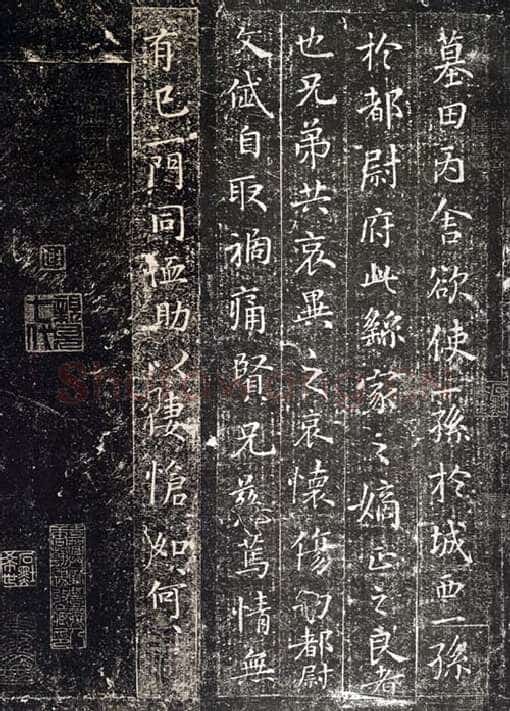 墓田丙舍欲使一孫於城西一孫
於都尉府此繇家之嫡正之良者
也兄弟共哀異之哀懷傷切都尉
文岱自取禍痛賢兄慈篤情無
有已一門同恤助以悽愴如何